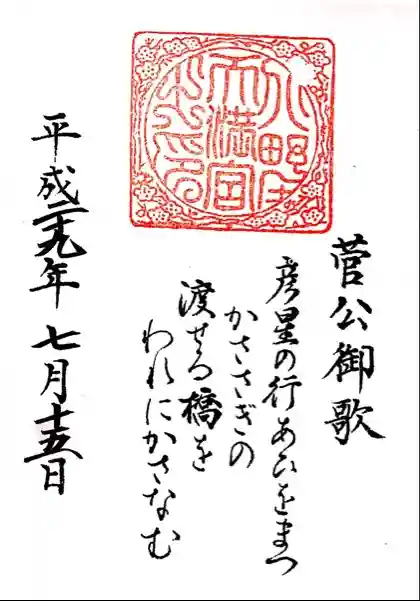 天満宮
菅公御歌
彦星の行あひをまつ
かささぎの
渡せる橋を
われにかさなむ
平成二十九年 七月十五日